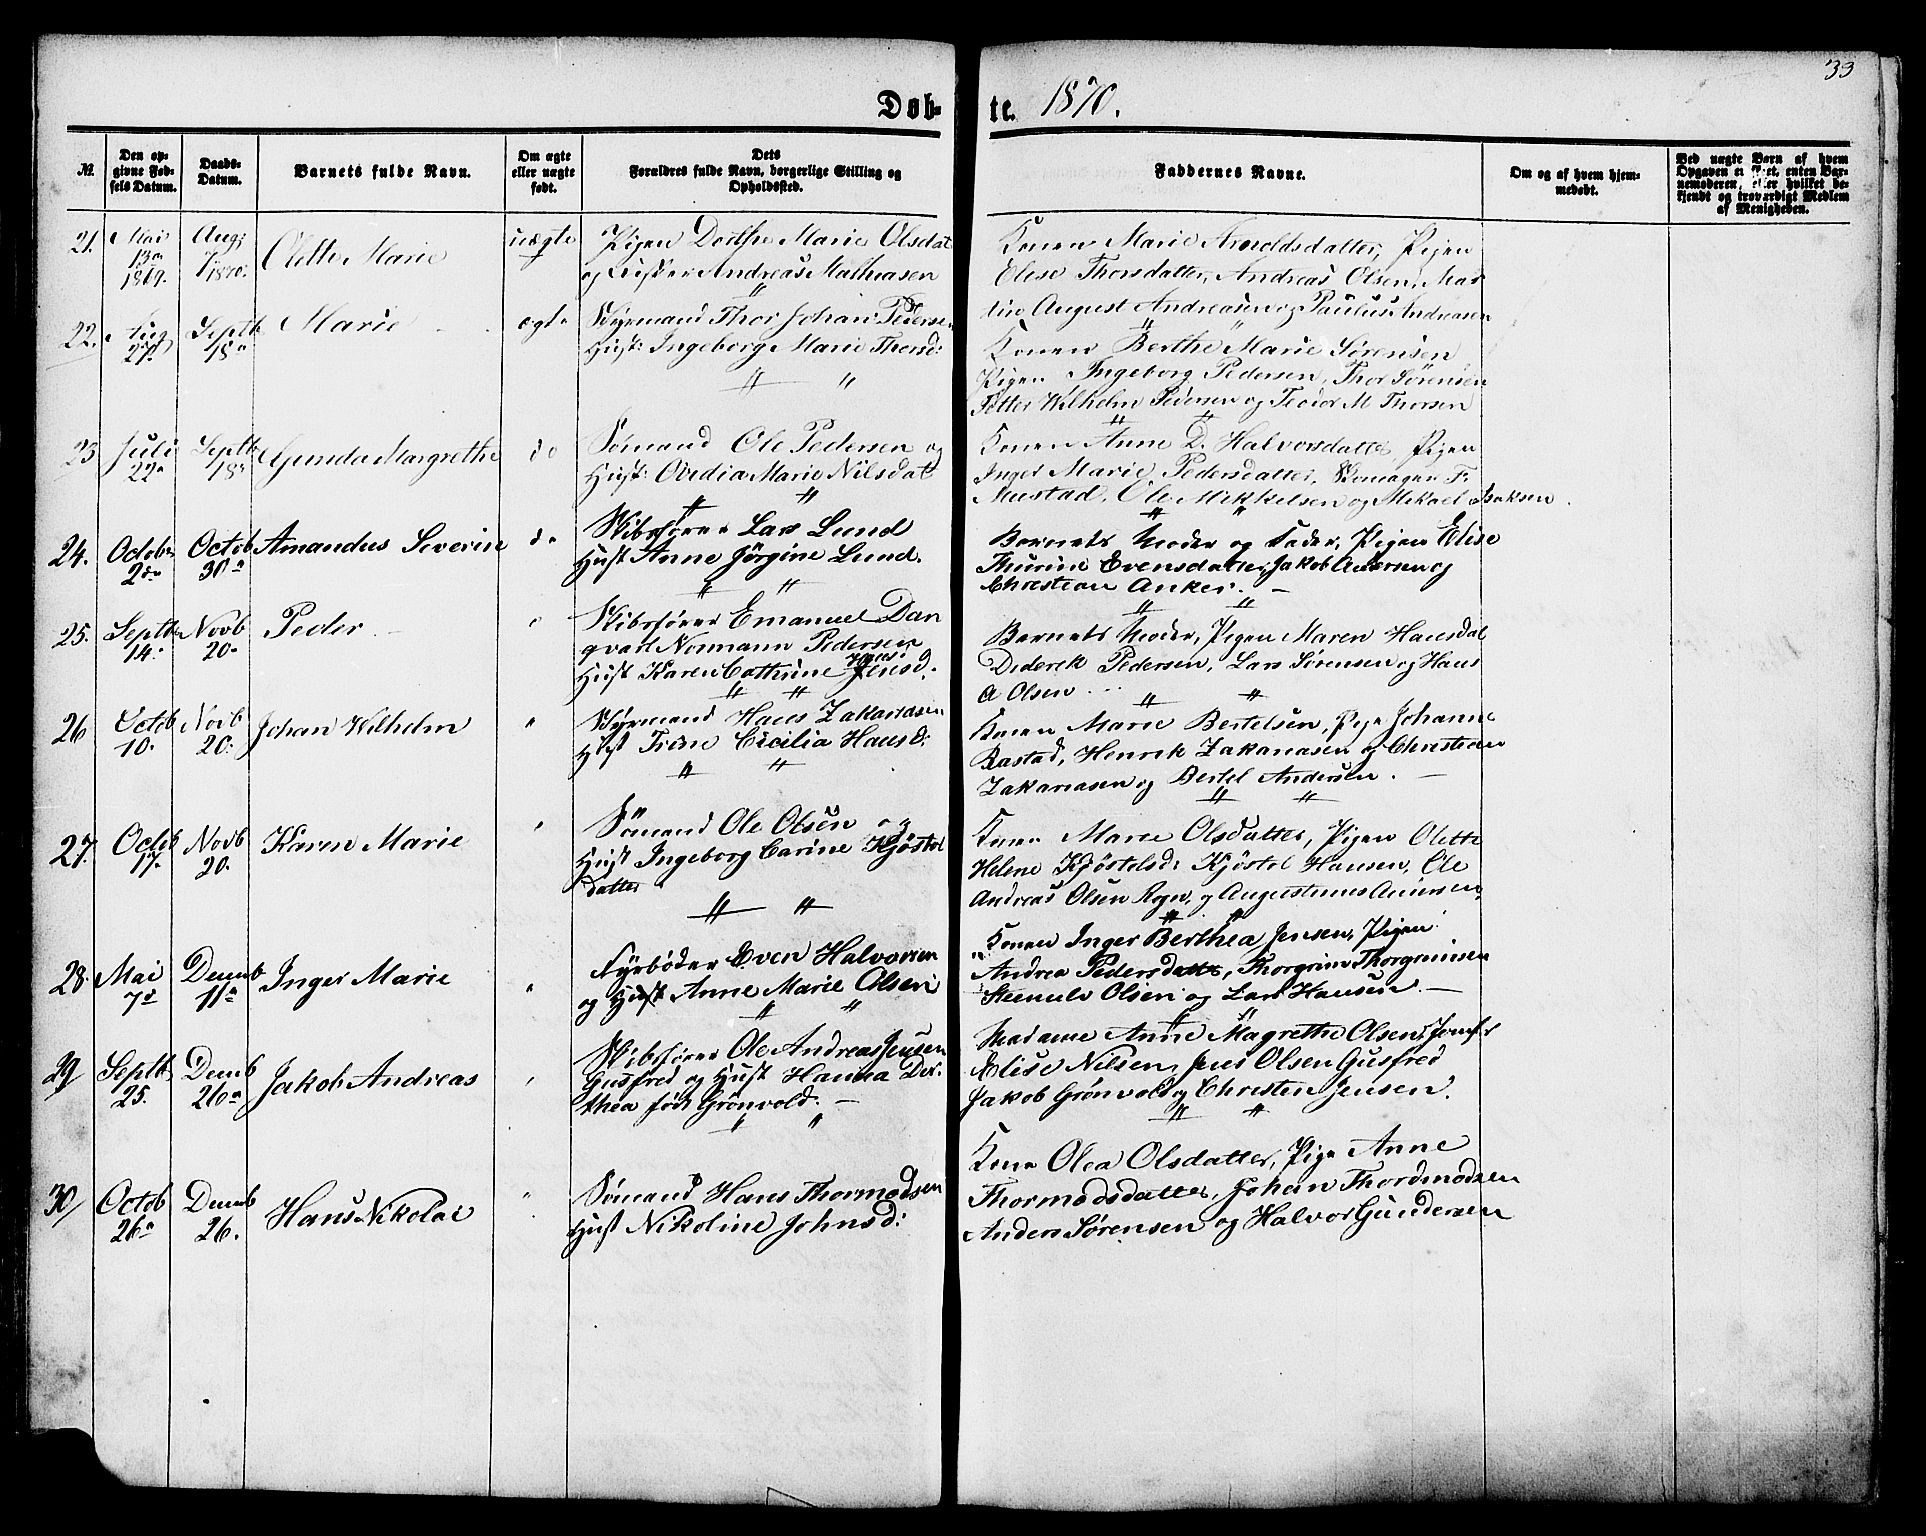 33
Døb- te. 1870.
No. Den opgivne Fødsels Datum. Daabs-Datum. Barnets fulde Navn. Om ægte eller uægte født. Dets Forældres fulde Navn, borgerlige Stilling og Opholdssted. Faddernes Navne. Om og af hvem hjemmedøbt. Ved uægte Børn af hvem Opgaven er skeet, enten Barnemoderen, eller hvilket bekjendt og troværdigt Medlem af Menigheden.
21. Mai 13de 1869. Aug: 7/1870. Olette Marie uægte Pigen Dorthe Marie Olsdat
og Andreas Mathiasen
Konen Marie Arnoldsdatter, Pigen
Elise Thorsdatter, Andreas Olsen, Mar
tin August Andreasen og Paulus Andreasen
22. Aug 27. Septb 18de Marie ægte Styrmand Thor Johan Pedersen
Hust: Ingeborg Marie Thorsd:
Konen Berthe Marie Sørensen
Pigen Ingeborg Pedersen, Thor Sørensen
Petter Wilhelm Pedersen og M Thorsen
23 Juli 22de Septb 18de Gunda Margrethe do Sømand Ole Pedersen og
Hust: Ovidia Marie Nilsdat
Konen Anne D. Halvorsdatter, Pigen
Inger Marie Pedersdatter, F.
Mustad, Ole Mikkelsen og Mikael Isaksen.
24. Octobr 2den Octob 30te Amandus Severin do Skibsfører Lars Lund
Hust Anne Jørgine Lund.
Barnets Moder og Fader, Pigen Elise
Thurine Evensdatter, Jakob Andersen og
Christian Anker. —
25. Septbr 14. Novb 20. Peder " Skibsfører Emanuel Dan
qvart Normann Pedersen
Hust Karen Cathrine Jensd.
Barnets Moder, Pigen Maren Hansdat
Diderek Pedersen, Lars Sørensen og Hans
A Olsen
26 Octob 10. Novb 20. Johan Wilhelm " Styrmand Hans Zakariasen
Hust Trine Cicilia Hansd:
Konen Marie Bertelsen, Pige Johanne
Rastad, Henrik Zakariasen og Christian
Zakariasen og Bertel Andersen. —
27. Octob 17. Novb 20. Karen Marie " Sømand Ole Olsen og
Hust Ingeborg Carine Kjøstel
datter
Kone Maree Olsdatter, Pigen Olette
Helene Kjøstelsd: Kjøstel Hansen, Ole
Andreas Olsen Røgn, og Augustinus Aanonsen
28. Mai 7d Decemb 11te Inger Marie " Fyrbøder Even Halvorsen
og Hust Anne Marie Olsen
Konen Inger Berthea Jensen, Pigen
Andrea Pedersdatter, Thorgrim Thorgrimsen
Steenulv Olsen og Lars Hansen. —
29/ Septb 25. Decemb 26de Jakob Andreas " Skibsfører Ole Andreas Jensen
Gusfred og Hust Hanna Dor.
thea født Grønvold. —
Madame Anne Magrethe Olsen, Jomfr
Elise Nilsen, Jens Olsen Gusfred
Jakob Grønvold og Christen Jensen.
30/ Octob 26de Decemb 26. Hans Nikolai " Sømand Hans Thormodsen
Hust Nikoline Johnsd:
Kone Olea Olsdatter, Pige Anne
Thormodsdatter, Johan Thordmodsen
Anders Sørensen og Halvor Gundersen